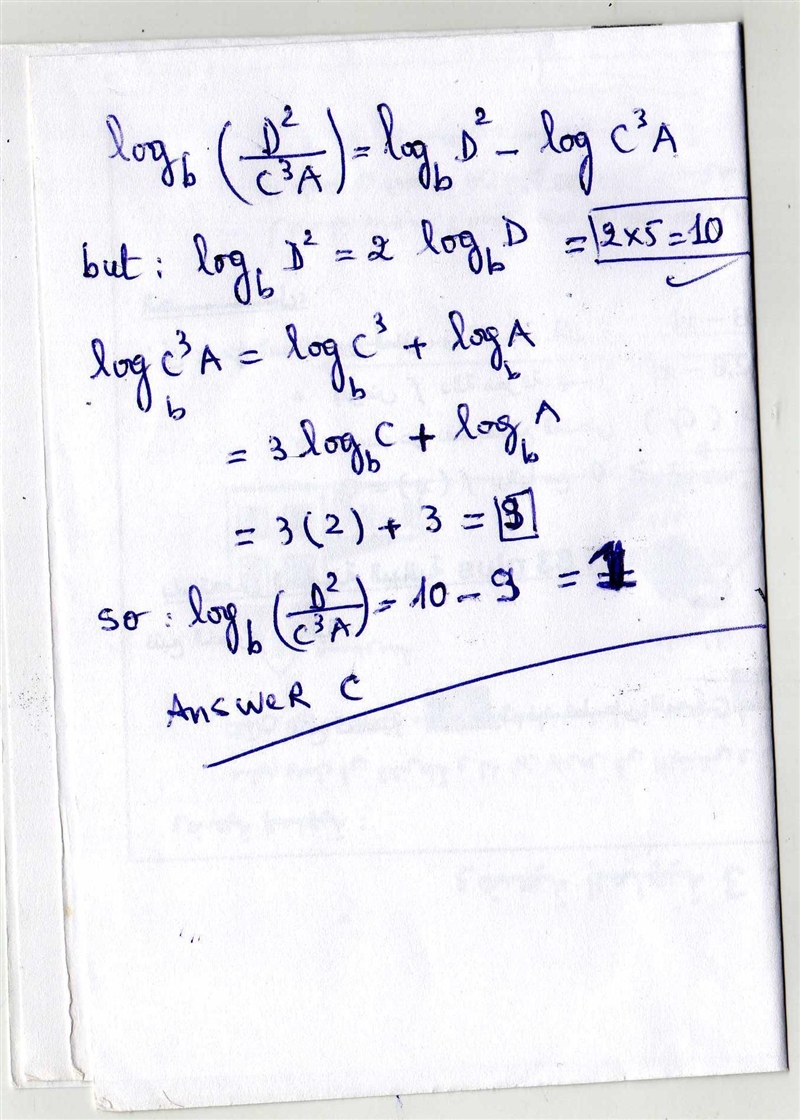 log_b (D²/C³A) = log_b D² - log C³A
but : log_b D² = 2 log_b D = 2×5=10
log_b C³A = log_b C³ + log_b A
= 3 log_b C + log_b A
= 3(2) + 3 = 9
so : log_b (D²/C³A) = 10 - 9 = 1
Answer C